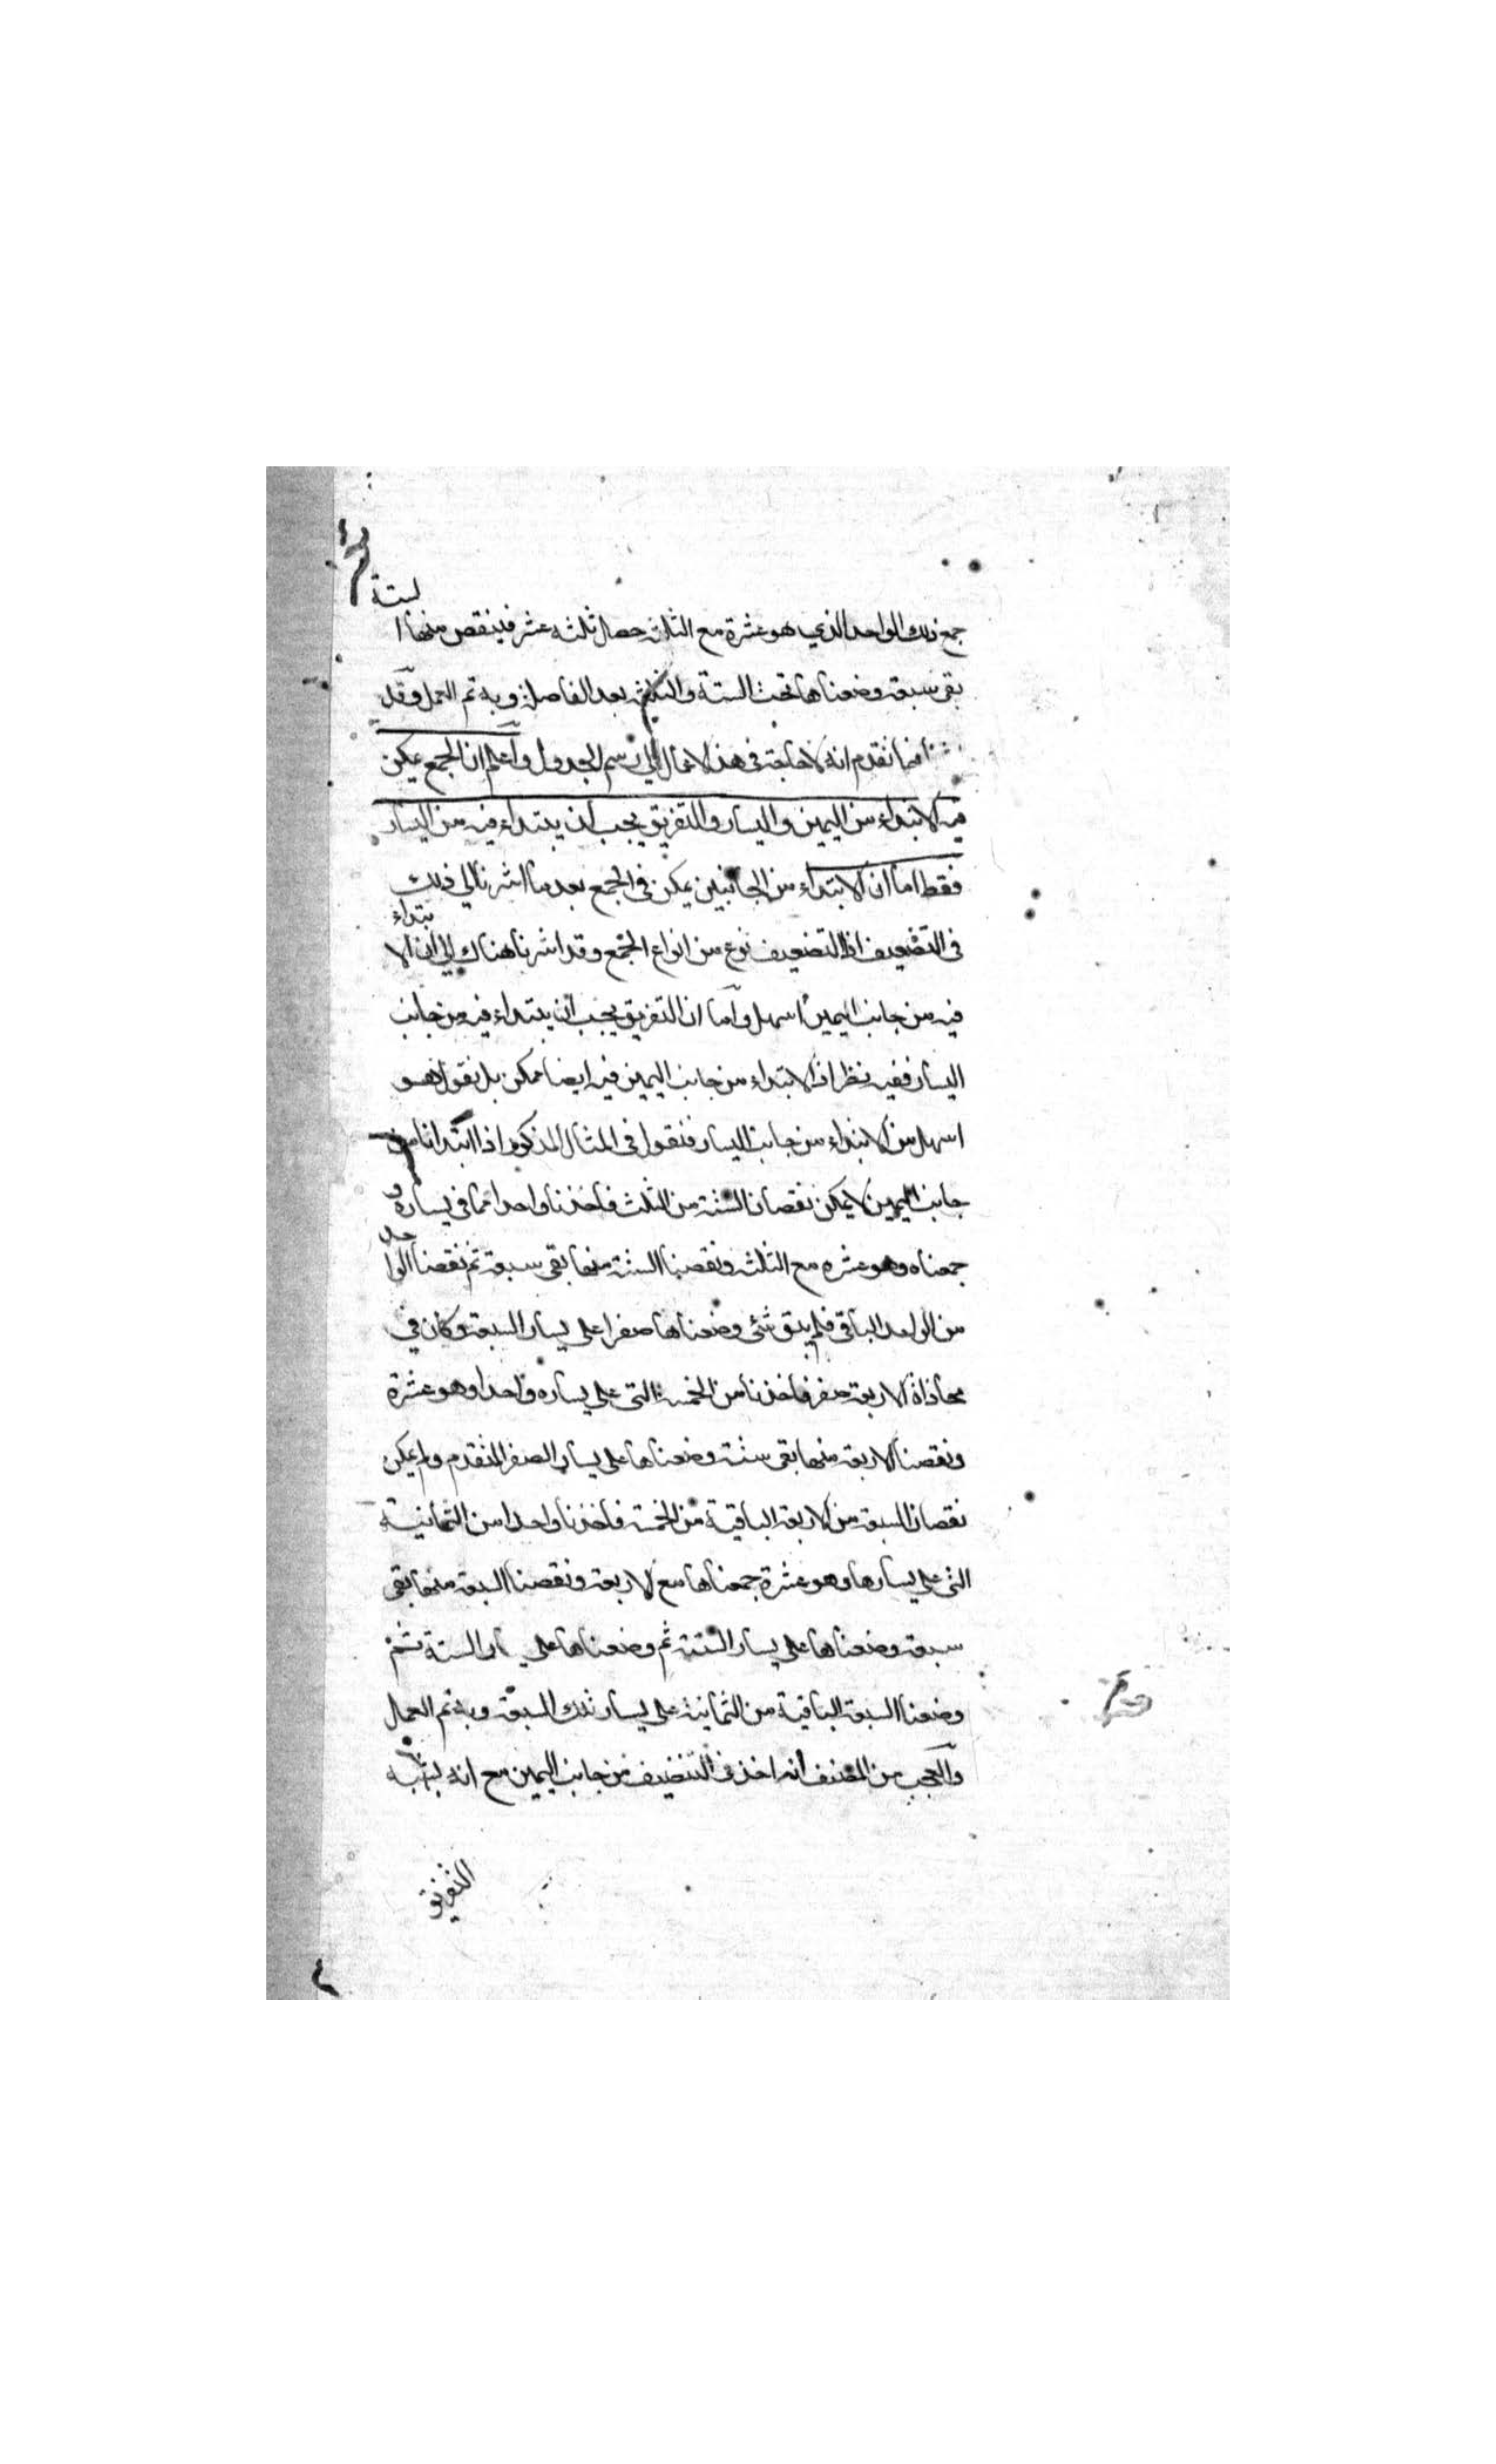 جمع ذلك الواحد الذي هو عشرة مع الثلث حصل ثلثه عشر فينقص منها الستة
بقى سبعة وضعناها تحت الستة والثلث بعد الفاصلة وبه تم العمل وقد
فيما تقدم انه لا حاجة في هذا الاعمال الي رسم الجدول واعلم ان الجمع يمكن
فيه الابتداء من اليمين واليسار والتفريق يجب ان يبتداء فيه من اليسار
فقط اما ان الابتداء من الجانبين يمكن في الجمع بعد ما اشرنا الي ذلك
في التضعيف اذ التضعيف نوع من انواع الجمع وقد اشرنا هناك الي ان الابتداء
فيه من جانب اليمين اسهل واما ان التفريق يجب ان يبتداء فيه من جانب
اليسار ففيه نظر اذ الابتداء من جانب اليمين فيه ايضا ممكن بل نقول هو
اسهل من الابتداء من جانب اليسار فنقول في المثال المذكور اذا ابتدانا من
جانب اليمين لا يمكن نقصان الستة من الثلث فاخذنا واحدا مما في يساره و
جمعناه وهو عشره مع الثلث ونقصنا الستة منها بقى سبعة ثم نقصنا الواحد
من الواحد الباقي فلم يبق شئ وضعناها صفرا على يسار السبعة وكان في
محاذاة الاربعة صفر فاخذنا من الخمسة التى على يساره واحدا وهو عشرة
ونقصنا الاربعة منها بقى ستة وضعناها على يسار الصفر المتقدم ولم يمكن
نقصان السبعة من الاربعة الباقية من الخمسة فاخذنا واحدا من الثمانية
التى على يسارها وهو عشرة جمعناها مع الاربعة ونقصنا السبعة منها بقى
سبعة وضعناها على يسار الستة ثم وضعناها على يسار الستة ثم
وضعنا السبعة الباقية من الثمانية على يسار تلك السبعة وبه تم العمل
والعجب من المصنف انه اخذ في التنصيف من جانب اليمين مع انه
التفريق